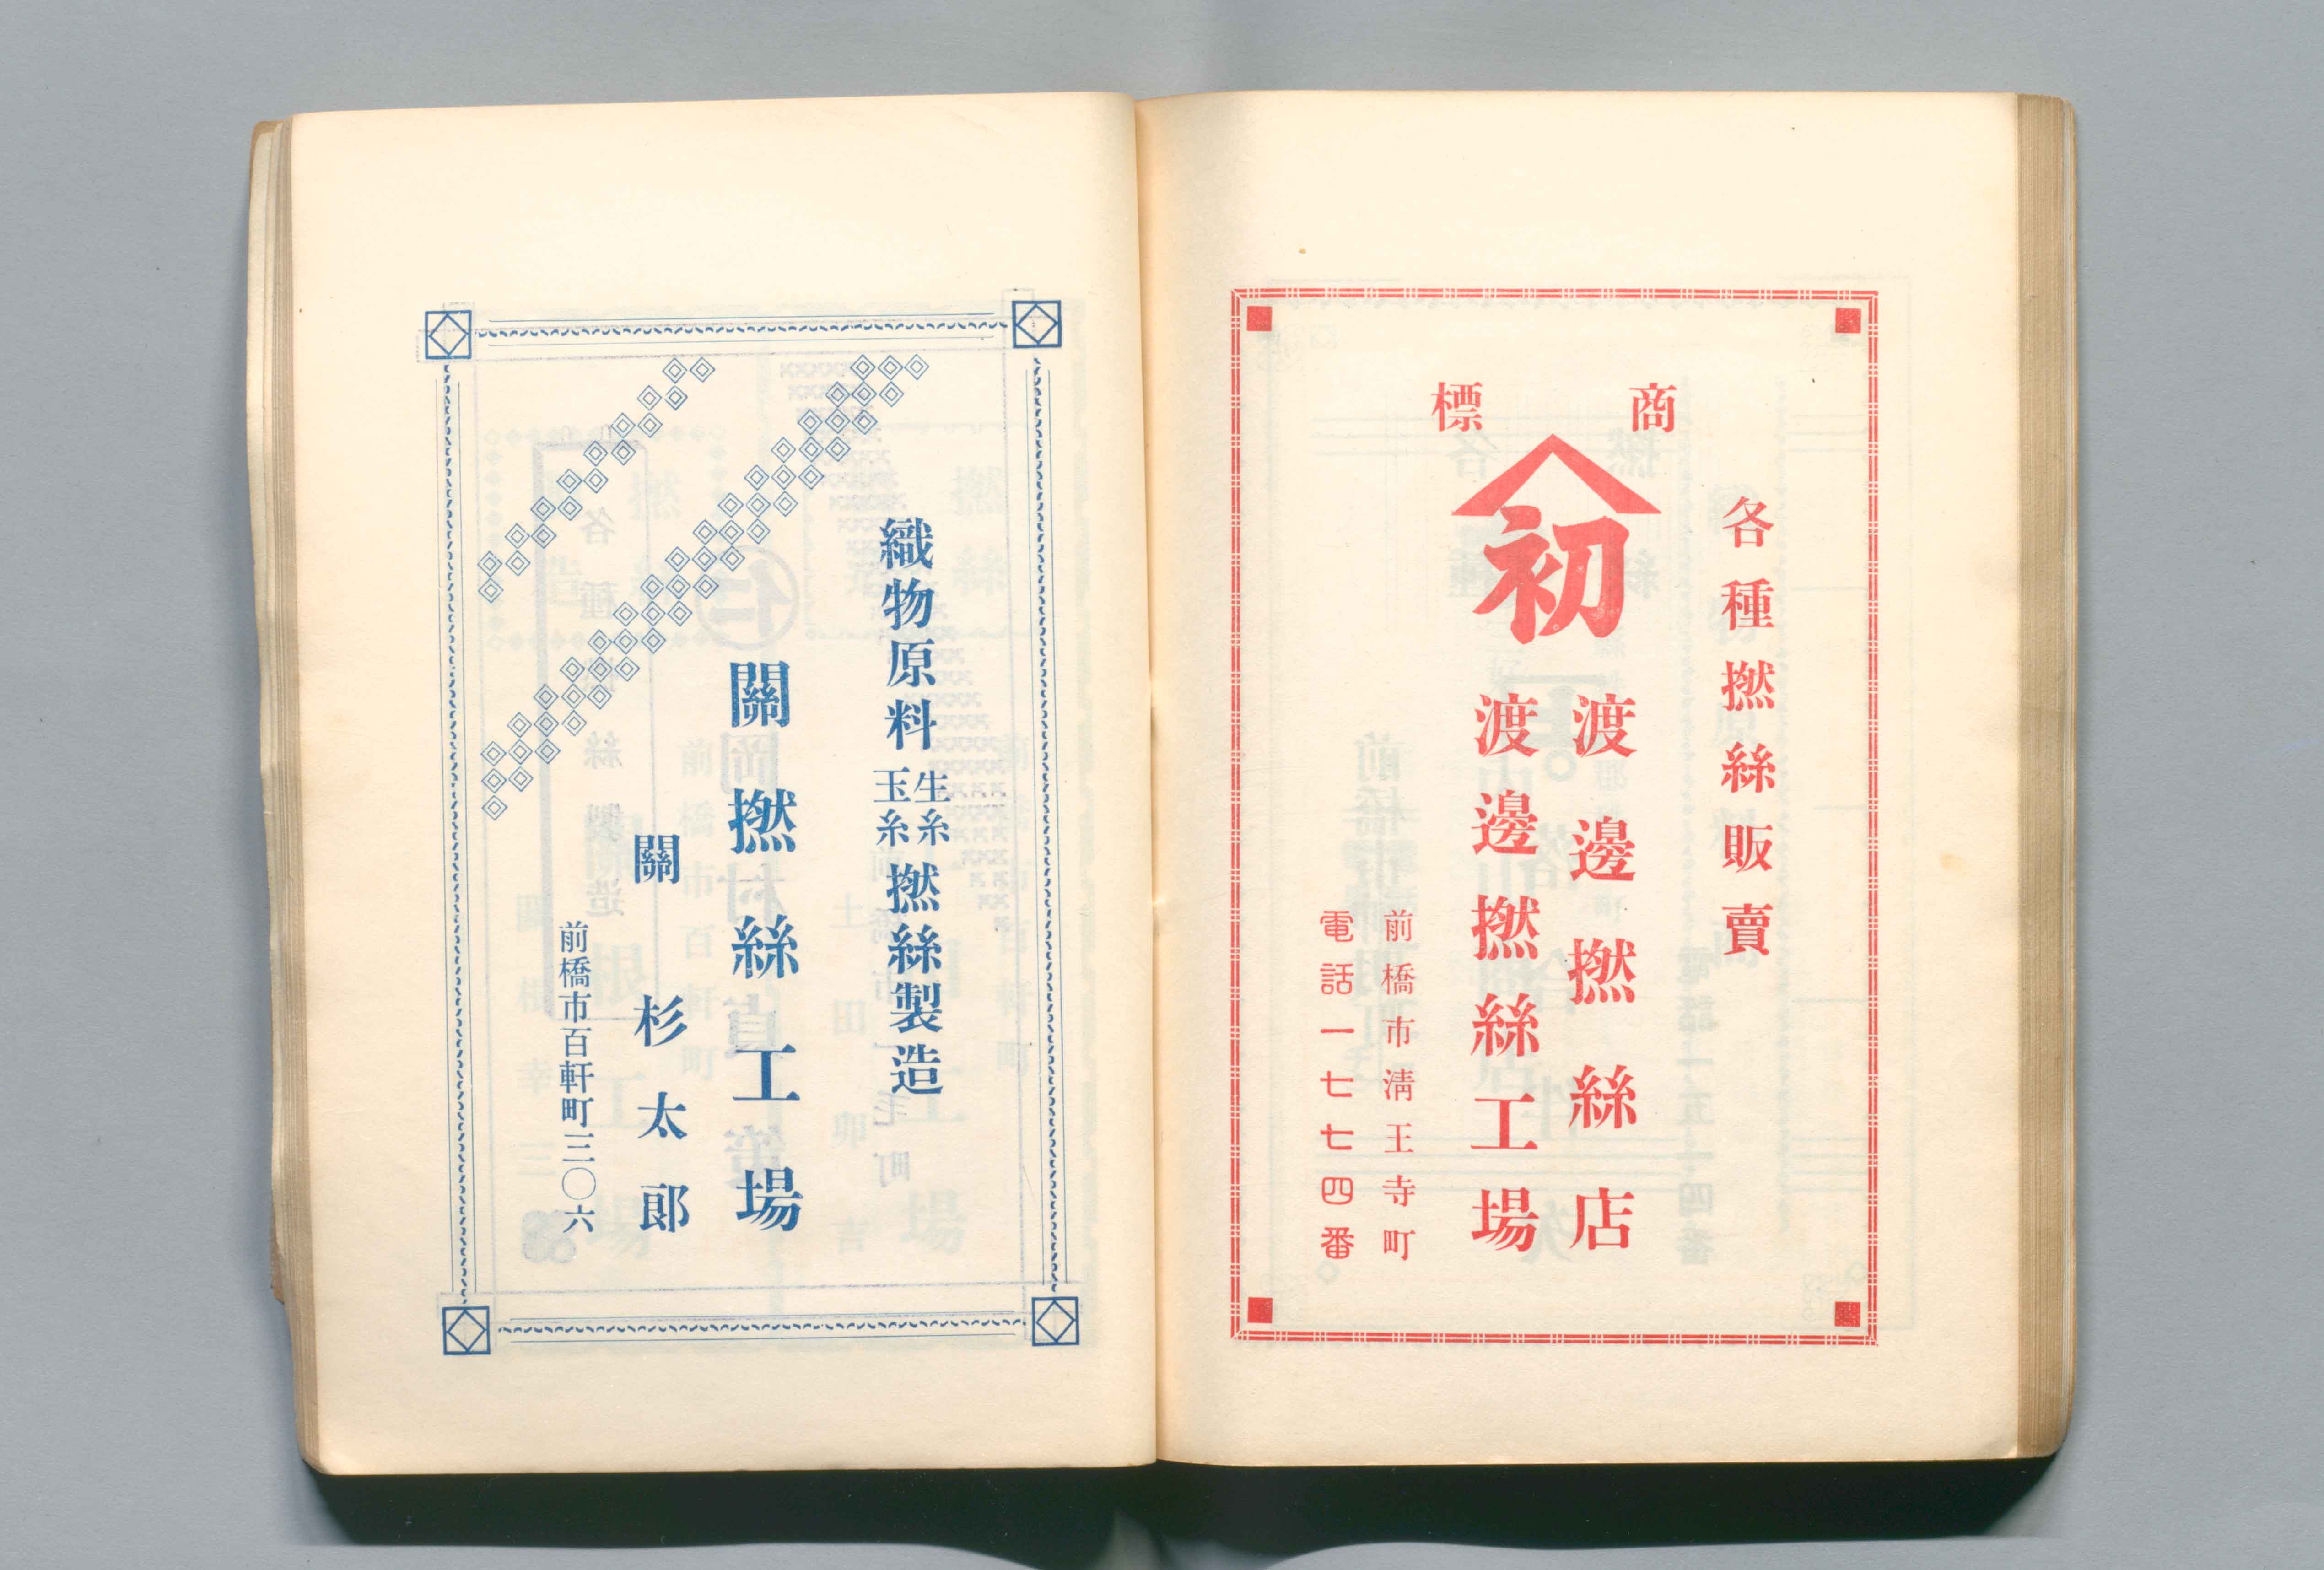 各種撚絲販賣
商標
初
渡邊撚絲店
渡邊撚絲工場
前橋市淸王寺町
電話一七七四番
織物原料
生糸
玉糸
撚絲製造
關撚絲工場
關杉太郞
前橋市百軒町三〇六